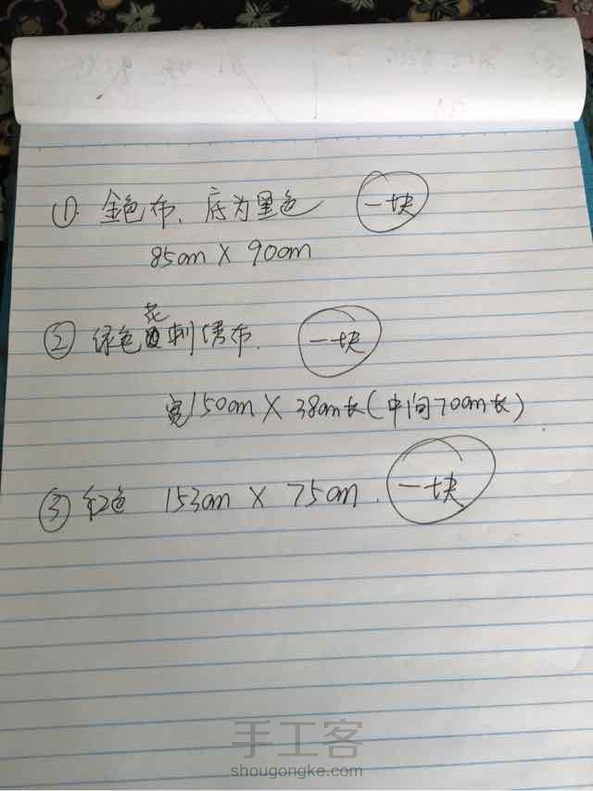 ① 金色布、底为黑色 一块
85cm X 90cm
② 绿色花刺绣布. 一块
宽150cm X 38cm长(中间70cm长)
③ 红色 153cm X 75cm. 一块
手工客
shougongke.com